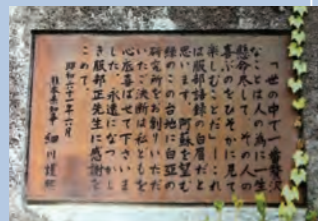 「世の中で一番贅沢
なことは人の為に一生
懸命尽して、その人の
喜ぶのをひそかに見て
楽しむことだ」―これ
は服部語録の白眉だと
思います。阿蘇を望む
緑のこの台地に白亜の
研究所をお創りいただ
いたご決断は私どもを
心底喜ばせて下さいま
した。永遠になつかし
き服部正先生に感謝を
こめて。
昭和六十一年六月
熊本県知事 細川護熙